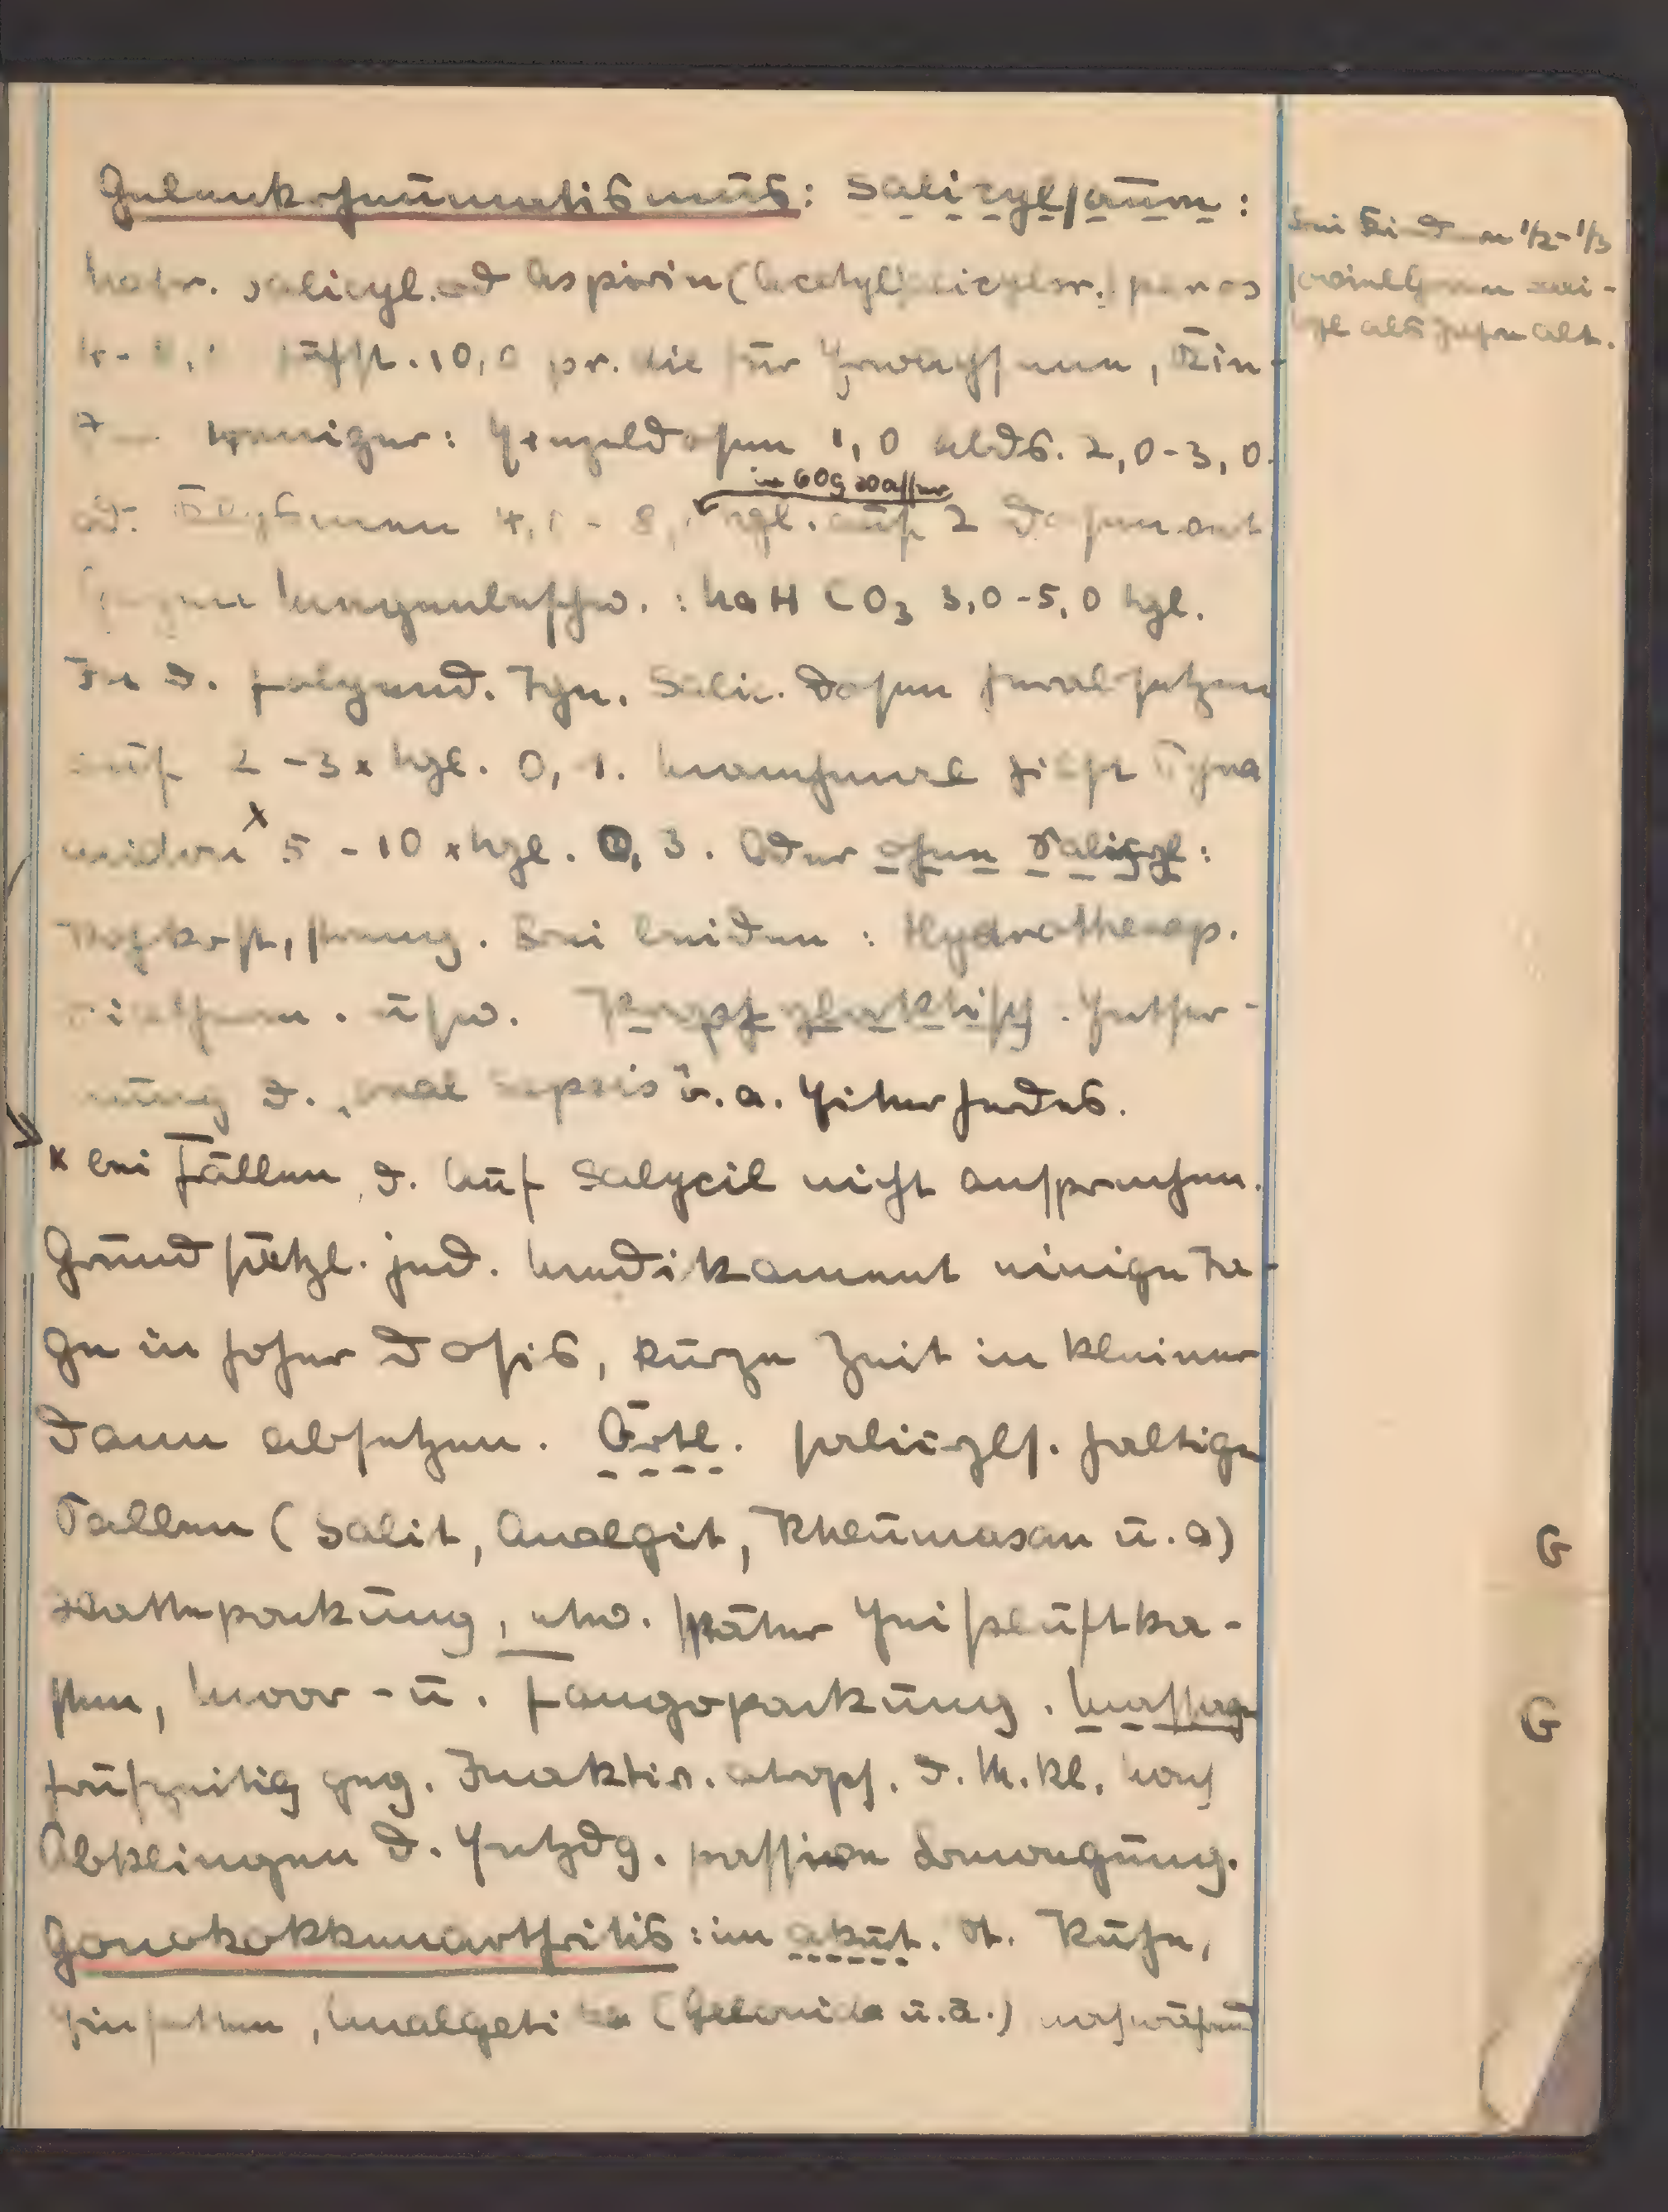 Gelenkrheumatismus: Salicylsäure:
Natr. salicyl. od Aspirin (Acetylsalicylsr.) per os
höchst. 10,0 pr. die für Erwachsene, Kin-
weniger: Einzeldosen 1,0 abds. 2,0-3,0.
in 60g Wasser
od. 4,0 - 8, tgl. auf 2 Dosen
gegen Magenbeschw.: NaHCO3 3,0-5,0 tgl.
In d. folgend. Tgn. Salic. Dosen herabsetzen
auf 2-3 x tgl. 0, 1. Manchmal hilft Pyra
midon x 5-10 x tgl. 0, 3. Oder ohne Salicyl:
Rohkost, streng. Bei beiden: Hydrotherap.
Diatherm. usw. Prophylaktisch. Entfer-
nung d. "oral sepsis" u. a. Eiterherdes.
x bei Fällen, d. auf Salycil nicht ansprechen.
Grundsätzl. jed. Medikament einige Ta-
ge in hoher Dosis, kurze Zeit in kleiner
dann absetzen. Örtl. salicyls. haltige
Salben (Salit, Analgit, Rheumasan u. a)
Wattepackung, etw. später Heissluftka-
sten, Moor- u. Fangopackung. Massage
frühzeitig geg. Inaktiv. atroph. d. M. Kl. Nach
Abklingen d. Entzdg. passive Bewegung.
Gonokokkenarthritis: im akut. St. Ruhe,
Einfetten, Analgetika (Gelonida u. ä.) während
bei Kindern 1/2-1/3
soviel Gramm wei-
als Jahre alt.
G
G